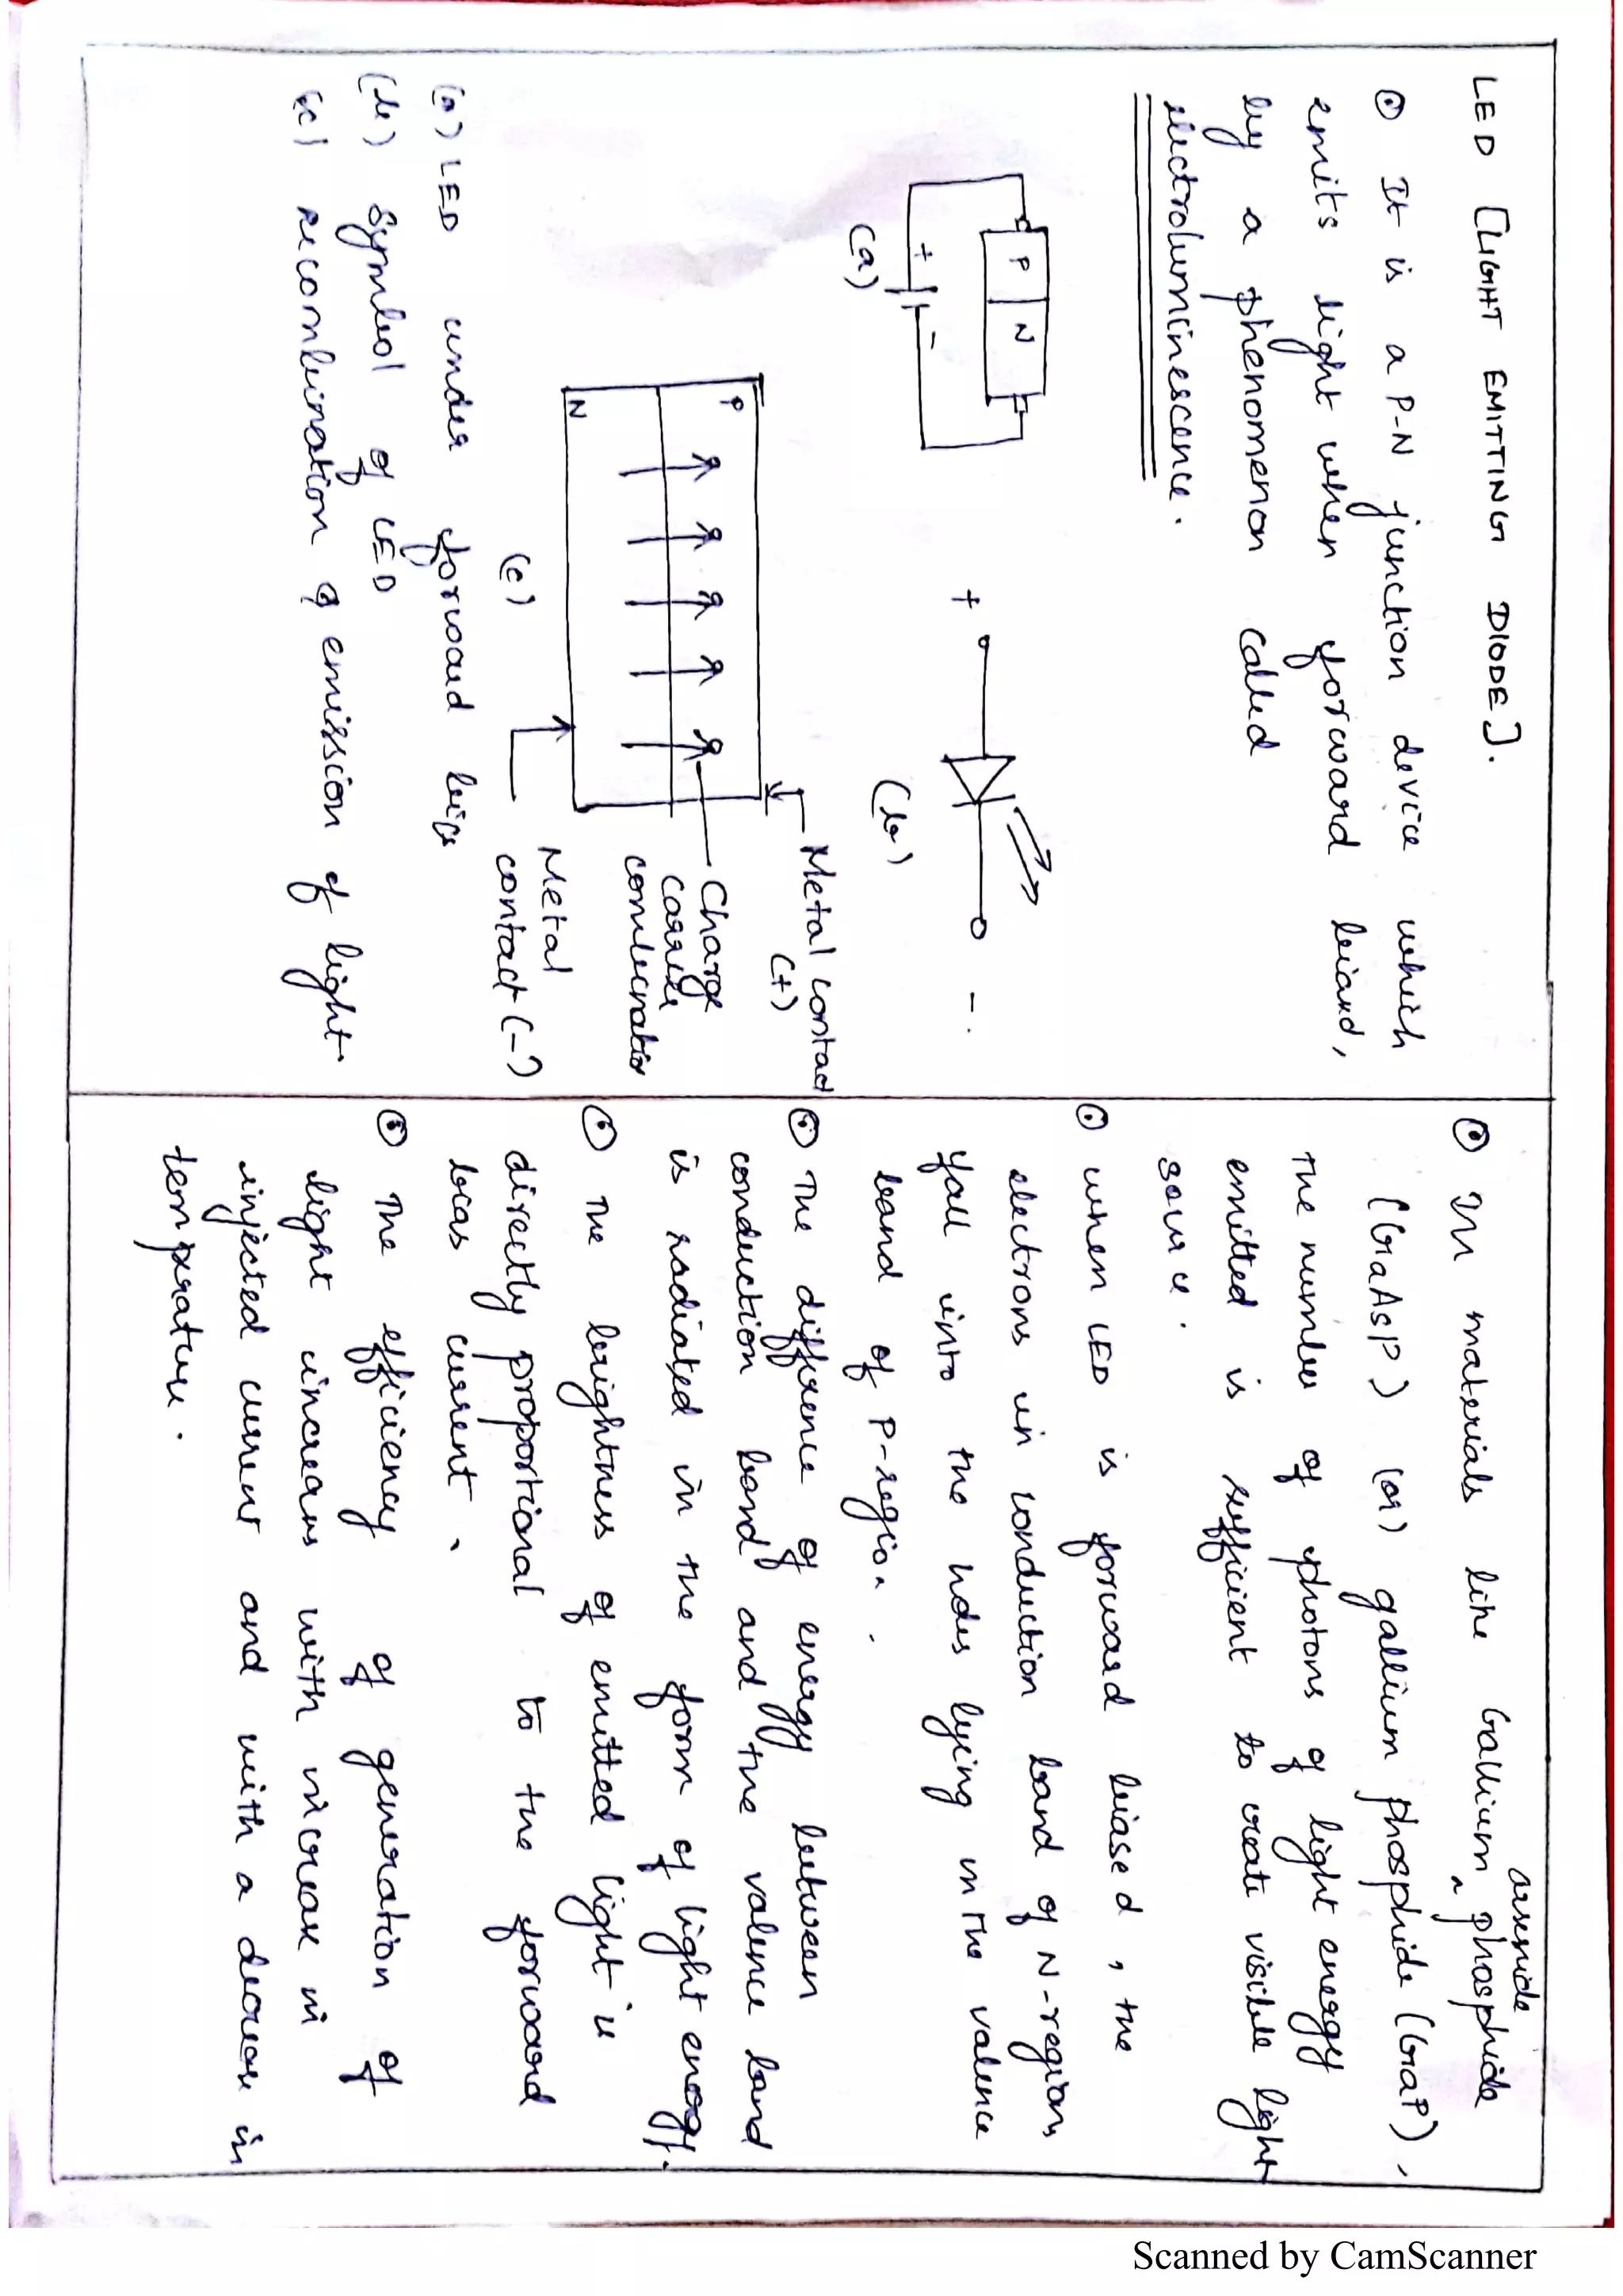 LED [LIGHT EMITTING DIODE].
⊙ It is a P-N junction device which
emits light when forward biard,
by a phenomenon called
electroluminescence.
P N
+ -
(a)
+ -.
(b)
P
N
Metal contact
(+)
Charge
carrier
combination
Metal
contact (-)
(c)
(a) LED under forward bias
(b) Symbol of LED
(c) recombination & emission of light.
⊙ In materials like Gallium arsenide phosphide
(GaAsP) (or) gallium phosphide (GaP),
The number of photons of light energy
emitted is sufficient to create visible light
when LED is forward biased, the
electrons in conduction band of N-region
fall into the holes lying in the valence
band of P-region.
The difference of energy between
conduction band and the valence band
is radiated in the form of light energy.
The brightness of emitted light is
directly proportional to the forward
bias current.
The efficiency of generation of
light increases with increase in
injected current and with a decrease in
temperature.
Scanned by CamScanner